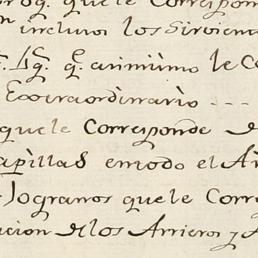 que le Corresponde
incluios los Sirvient
q. animismo le Co
Extraordinario - - -
que le Corresponde d
apillas en todo el A
Jogranos que le Corre
cion de los Arrieros y A